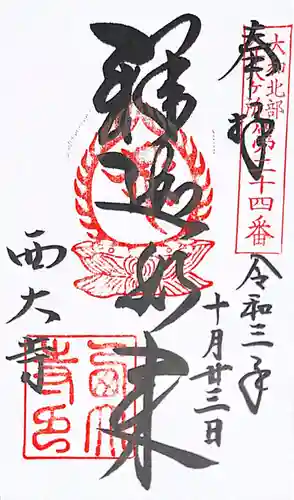 奉拝
大和北部
八十八ヶ所第三十四番
令和三年
十月廿三日
釋迦如来
西大寺